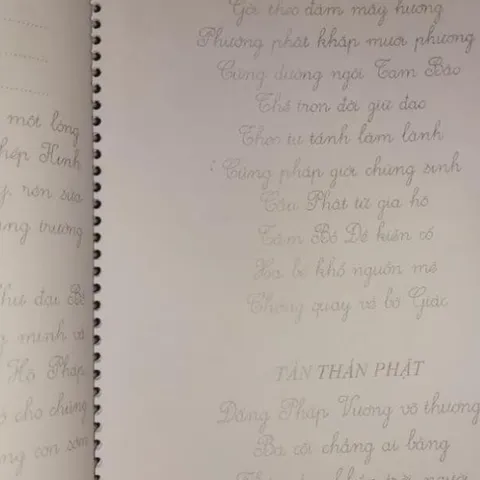 một lòng
Hinh
, rén sửa
ưng trương
đại Bồ
minh và
Hộ Pháp
cho chúng
ng con sớm
Gởi theo đám mây hương
Phưởng phất khắp mười phương
Cúng dường ngôi Tam Bảo
Thề trọn đời giữ đạo
Theo tự tánh làm lành
Cùng pháp giới chúng sinh
Cầu Phật từ gia hộ
Tâm Bồ Đề kiên cố
Xa bể khổ nguồn mê
Chóng quay về bờ Giác
TÁN THÁN PHẬT
Đấng Pháp Vương vô thượng
Ba cõi chẳng ai bằng